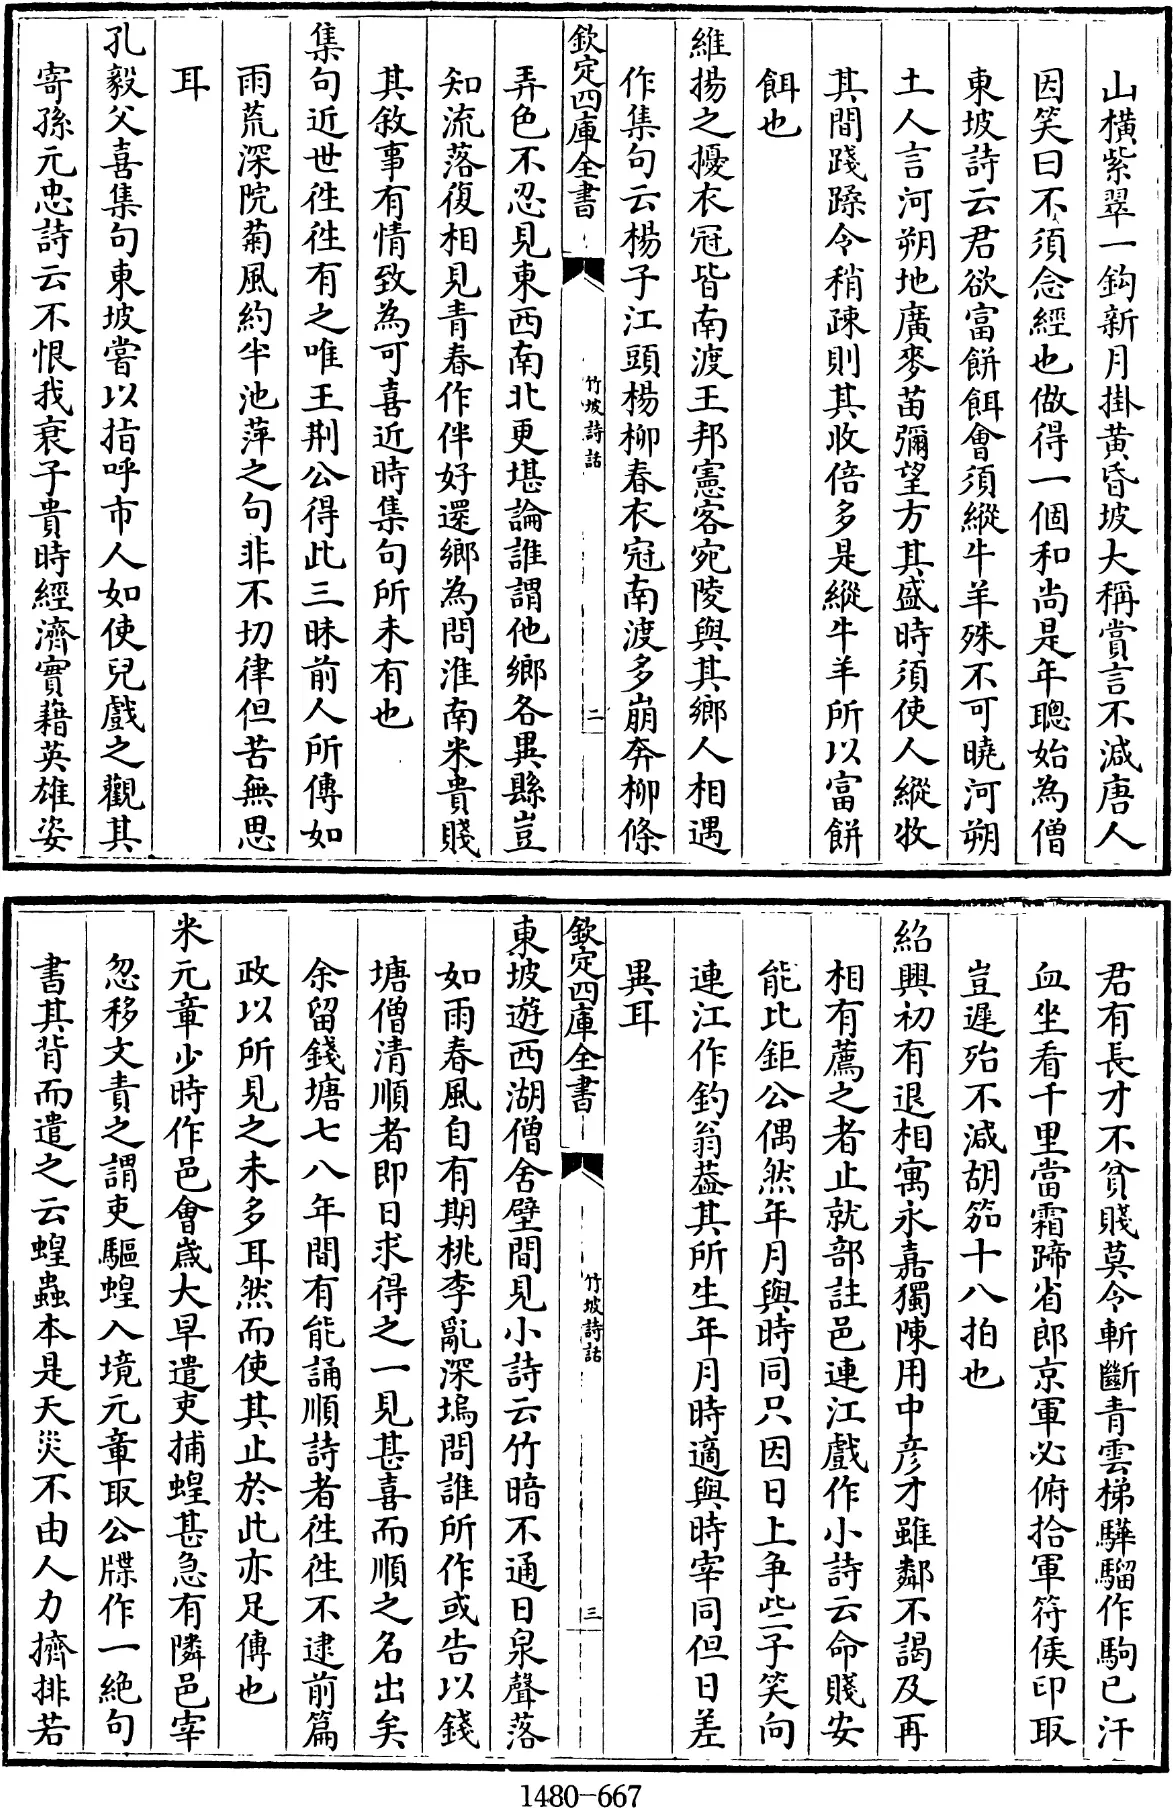 山橫紫翠一鈎新月掛黃昏坡大稱賞言不減唐人
因笑曰不須念經也做得一個和尚是年聰始為僧
東坡詩云君欲富餅餌會須縱牛羊殊不可曉河朔
土人言河朔地廣麥苗彌望方其盛時須使人縱牧
其間踐蹂令稍疎則其收倍多是縱牛羊所以富餅
餌也
維揚之擾衣冠皆南渡王邦憲客宛陵與其鄉人相遇
作集句云楊子江頭楊柳春衣冠南渡多崩奔柳條
欽定四庫全書 竹坡詩話 二
弄色不忍見東西南北更堪論誰謂他鄉各異縣豈
知流落復相見青春作伴好還鄉為問淮南米貴賤
其敘事有情致為可喜近時集句所未有也
集句近世徃徃有之唯王荆公得此三昧前人所傳如
雨荒深院菊風約半池萍之句非不切律但苦無思
耳
孔毅父喜集句東坡嘗以指呼市人如使兒戲之觀其
寄孫元忠詩云不恨我衰子貴時經濟實藉英雄姿
君有長才不貧賤莫令斬斷青雲梯驊騮作駒已汗
血坐看千里當霜蹄省郎京軍必俯拾軍符侯印取
豈遲殆不減胡笳十八拍也
紹興初有退相寓永嘉獨陳用中彦才雖鄰不謁及再
相有薦之者止就部註邑連江戲作小詩云命賤安
能比鉅公偶然年月與時同只因日上争些子笑向
連江作釣翁葢其所生年月時適與時宰同但日差
異耳
欽定四庫全書 竹坡詩話 三
東坡遊西湖僧舍壁間見小詩云竹暗不通日泉聲落
如雨春風自有期桃李亂深塢問誰所作或告以錢
塘僧清順者即日求得之一見甚喜而順之名出矣
余留錢塘七八年間有能誦順詩者徃徃不逮前篇
政以所見之未多耳然而使其止於此亦足傳也
米元章少時作邑會歲大旱遣吏捕蝗甚急有隣邑宰
忽移文責之謂吏驅蝗入境元章取公牒作一絶句
書其背而遣之云蝗蟲本是天災不由人力擠排若
1480-667